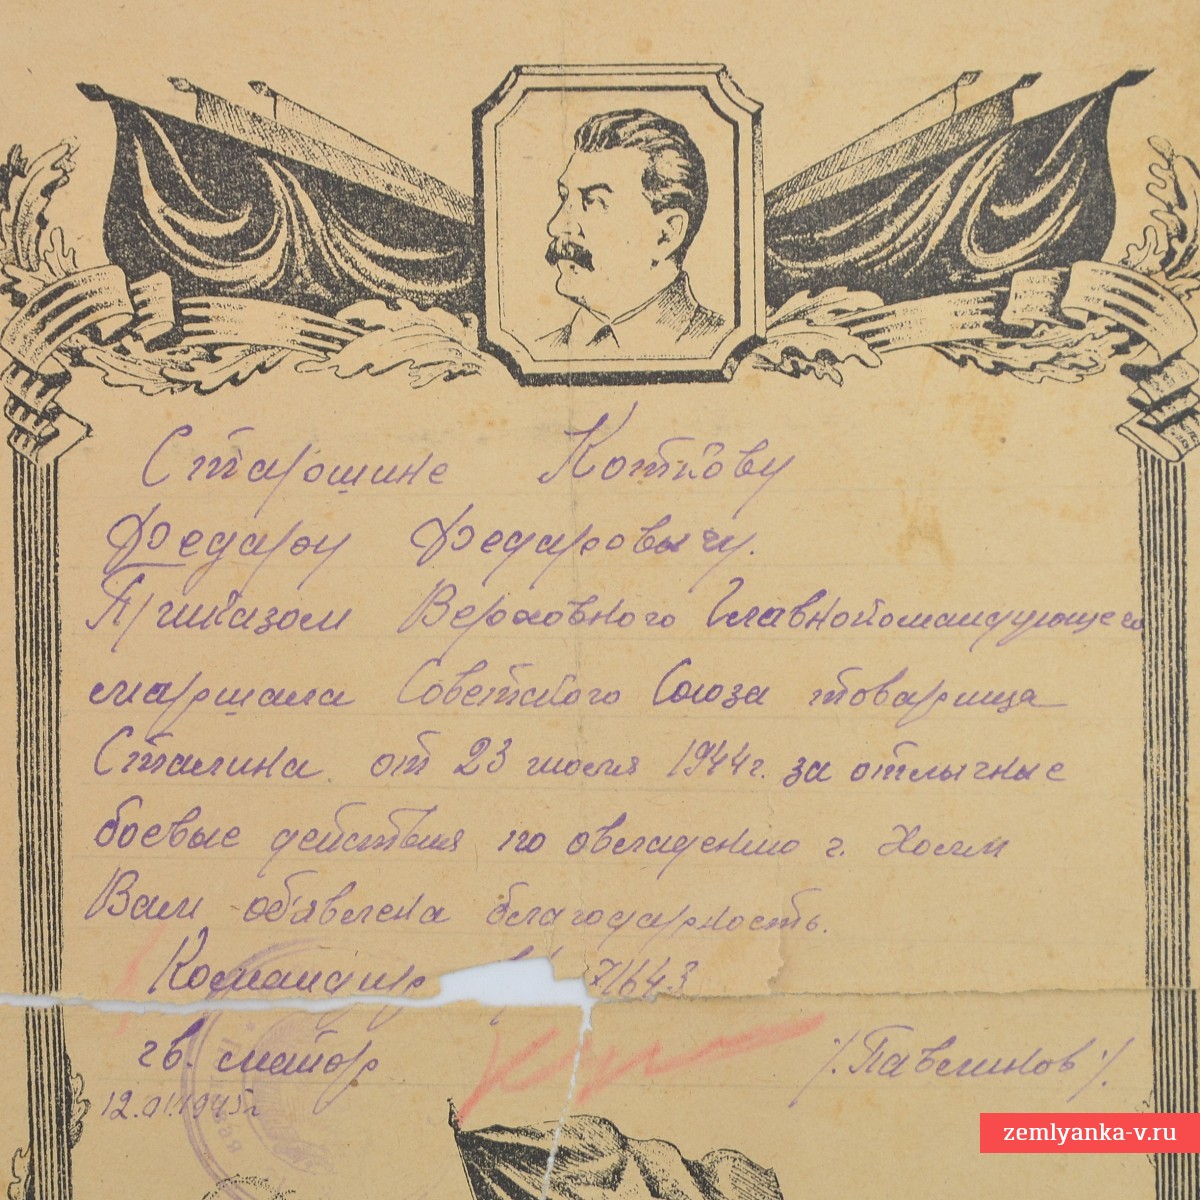 Старшине Коткову
Федару Федаровычу.
Приказом Верховного Главнокомандующего
маршала Советского Союза товарища
Сталина от 23 июля 1944г. за отлычные
боевые действия по овладению г. Холм
Вам об'явлена благодарность.
Командир 71643
гв. майор /Павлинов/.
12.01.1945г
zemlyanka-v.ru